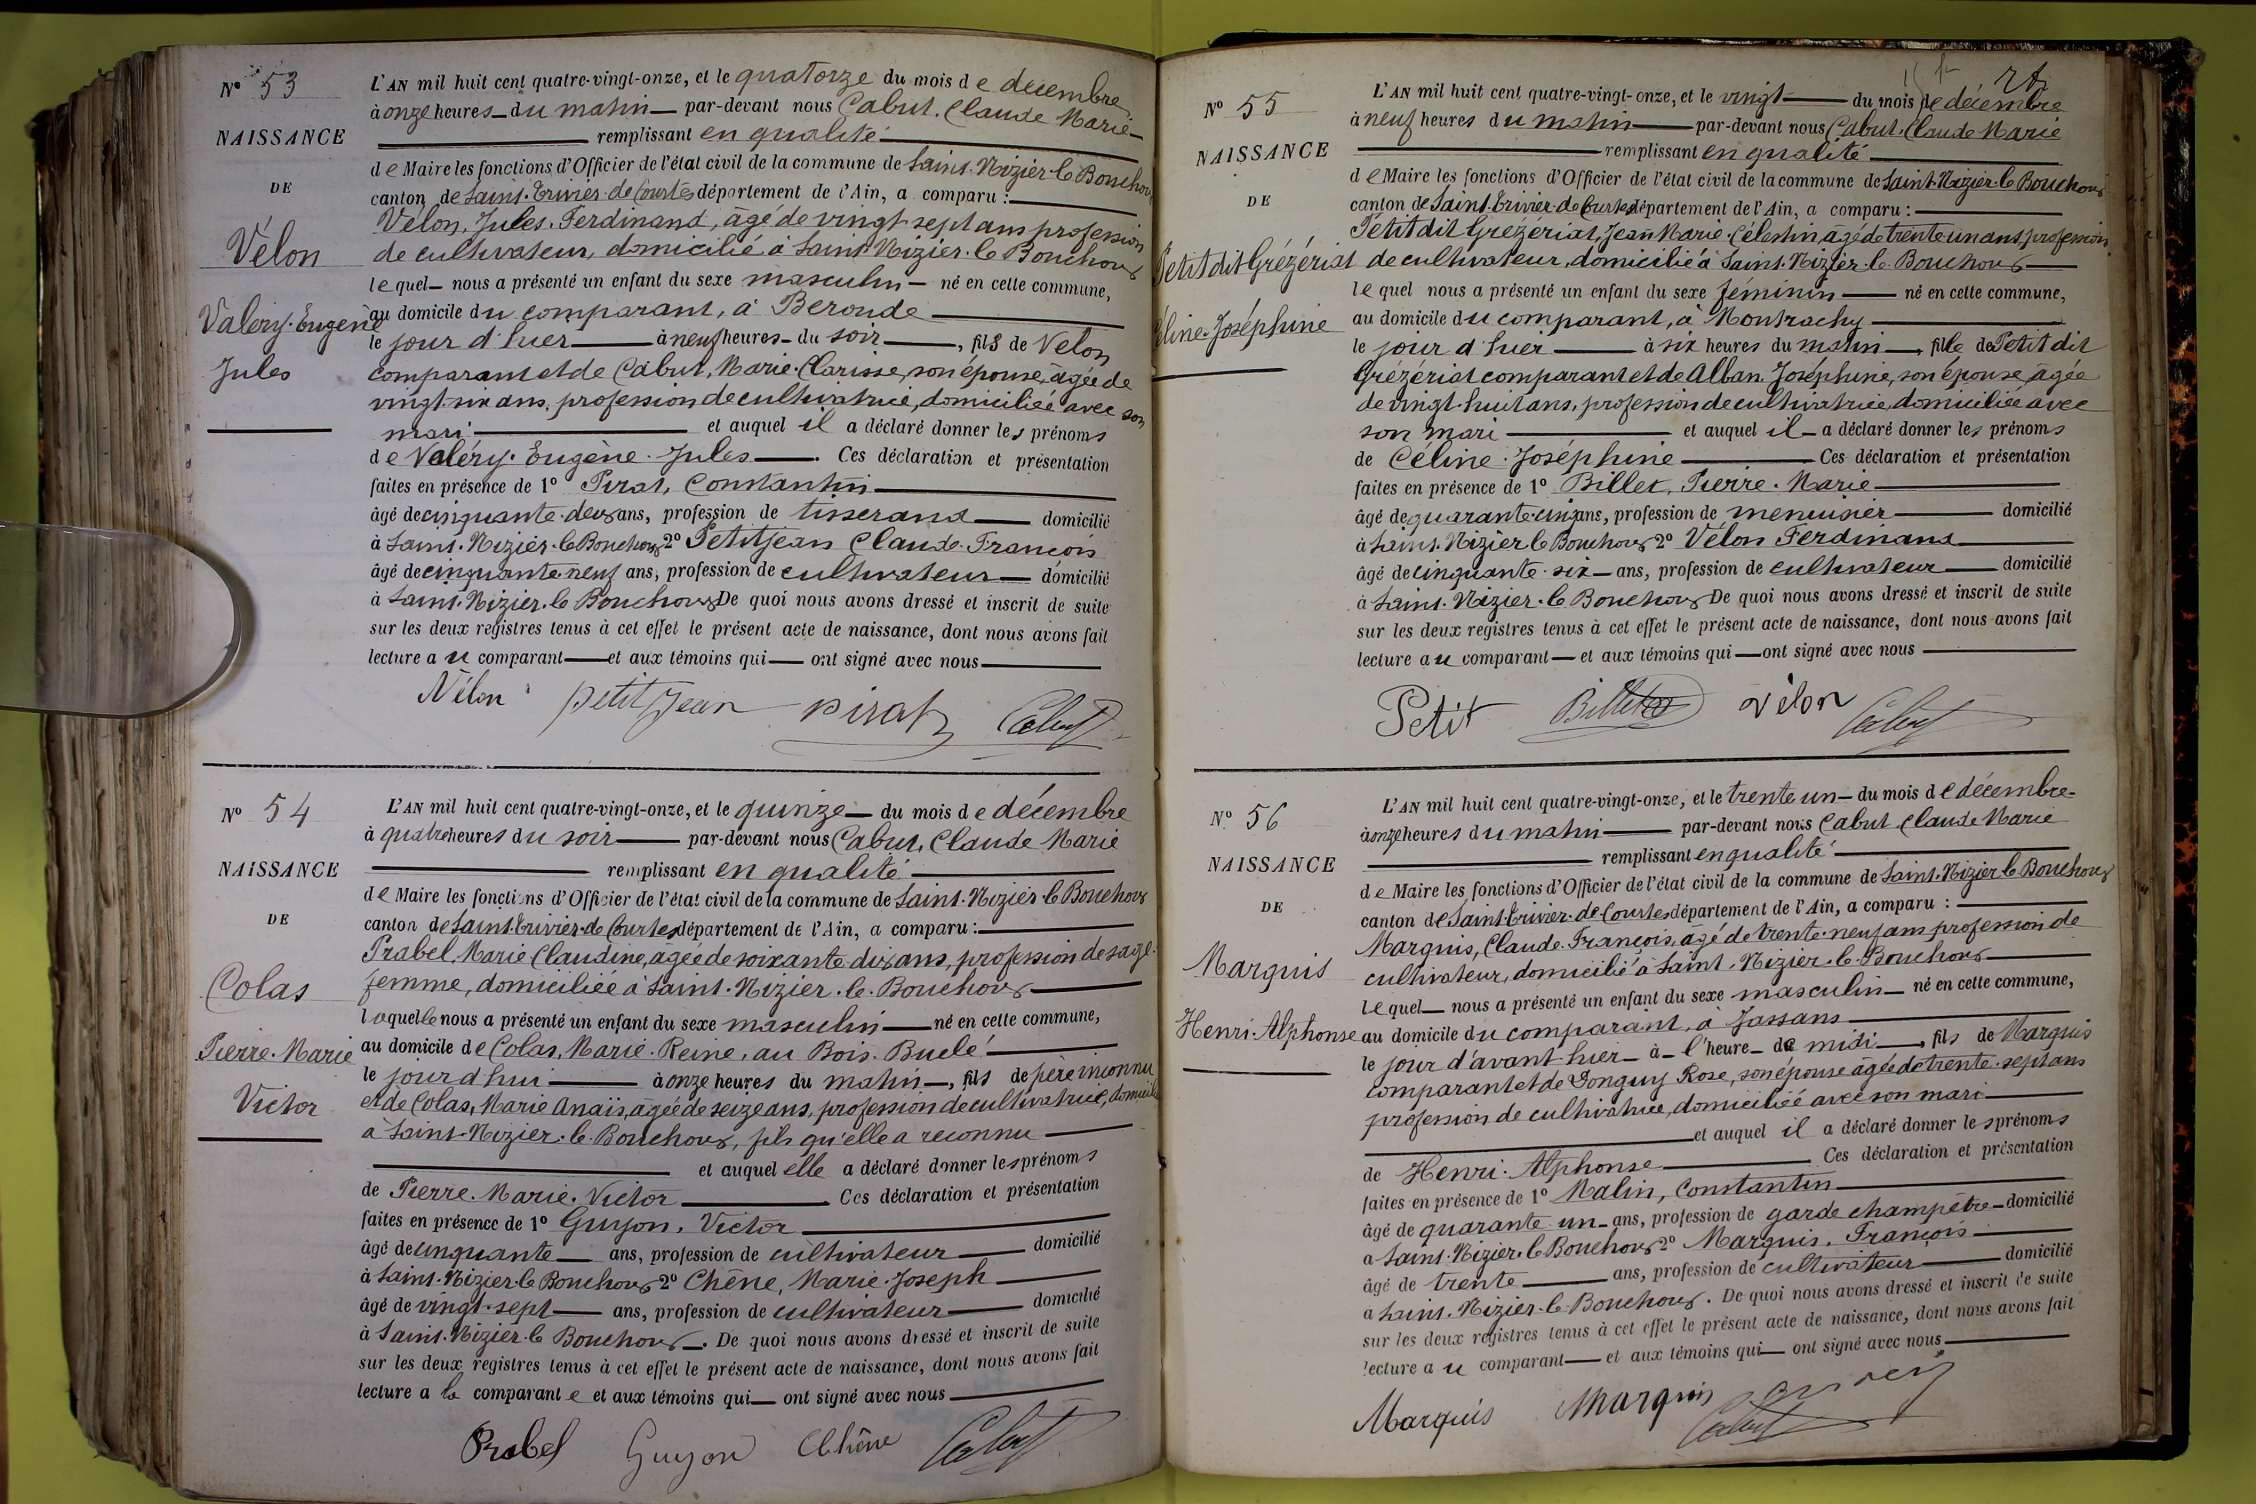 N° 53
NAISSANCE
DE
Vélon
Valéry. Eugène
Jules
L'AN mil huit cent quatre-vingt-onze, et le quatorze du mois de décembre
à onze heures du matin par-devant nous Cabut, Claude Marie
remplissant en qualité
de Maire les fonctions d'Officier de l'état civil de la commune de Saint-Nizier-le Bouchoux
canton de Saint-Trivier-de Courtes département de l'Ain, a comparu :
Vélon, Jules. Ferdinand, âgé de vingt sept ans profession
de cultivateur, domicilié à Saint-Nizier-le Bouchoux
lequel nous a présenté un enfant du sexe masculin né en cette commune,
au domicile du comparant, à Beronde
le jour d'hier à neuf heures du soir, fils de Velon
comparant et de Cabut, Marie-Clarisse, son épouse, âgée de
vingt-six ans, profession de cultivatrice, domiciliée avec son
mari et auquel il a déclaré donner les prénoms
de Valéry. Eugène. Jules. Ces déclaration et présentation
faites en présence de 1° Pirat, Constantin
âgé de cinquante-deux ans, profession de tisserand domicilié
à Saint-Nizier-le Bouchoux 2° Petitjean Claude-François
âgé de cinquante-neuf ans, profession de cultivateur domicilié
à Saint-Nizier-le Bouchoux De quoi nous avons dressé et inscrit de suite
sur les deux registres tenus à cet effet le présent acte de naissance, dont nous avons fait
lecture au comparant et aux témoins qui ont signé avec nous
Vélon petitjean pirat Cabut
N° 54
NAISSANCE
DE
Colas
Pierre. Marie
Victor
L'AN mil huit cent quatre-vingt-onze, et le quinze du mois de décembre
à quatre heures du soir par-devant nous Cabut, Claude Marie
remplissant en qualité
de Maire les fonctions d'Officier de l'état civil de la commune de Saint-Nizier-le Bouchoux
canton de Saint-Trivier-de Courtes département de l'Ain, a comparu :
Prabel, Marie Claudine, âgée de soixante dix ans, profession de sage-
femme, domiciliée à Saint-Nizier-le-Bouchoux
laquelle nous a présenté un enfant du sexe masculin né en cette commune,
au domicile de Colas, Marie-Reine, au Bois-Buclé
le jour d'hui à onze heures du matin, fils de père inconnu
et de Colas, Marie Anaïs, âgée de seize ans, profession de cultivatrice, domicilié
à Saint-Nizier-le-Bouchoux, fils qu'elle a reconnu
et auquel elle a déclaré donner les prénoms
de Pierre. Marie. Victor Ces déclaration et présentation
faites en présence de 1° Guyon, Victor
âgé de cinquante ans, profession de cultivateur domicilié
à Saint-Nizier-le Bouchoux 2° Chêne, Marie-Joseph
âgé de vingt-sept ans, profession de cultivateur domicilié
à Saint-Nizier-le Bouchoux. De quoi nous avons dressé et inscrit de suite
sur les deux registres tenus à cet effet le présent acte de naissance, dont nous avons fait
lecture a la comparante et aux témoins qui ont signé avec nous
Prabel Guyon Chêne Cabut
N° 55
NAISSANCE
DE
Petit dit Grézériat
Céline-Joséphine
L'AN mil huit cent quatre-vingt-onze, et le vingt du mois de décembre
à neuf heures du matin par-devant nous Cabut, Claude Marie
remplissant en qualité
de Maire les fonctions d'Officier de l'état civil de la commune de Saint-Nizier-le Bouchoux
canton de Saint-Trivier-de Courtes département de l'Ain, a comparu :
Petit dit Grézériat, Jean Marie-Célestin, âgé de trente un ans, profession
de cultivateur, domicilié à Saint-Nizier-le-Bouchoux
lequel nous a présenté un enfant du sexe féminin né en cette commune,
au domicile du comparant, à Montrachy
le jour d'hier à six heures du matin, fille de Petit dit
Grézériat comparant et de Alban Joséphine, son épouse âgée
de vingt-huit ans, profession de cultivatrice, domiciliée avec
son mari et auquel il a déclaré donner les prénoms
de Céline. Joséphine Ces déclaration et présentation
faites en présence de 1° Billet, Pierre-Marie
âgé de quarante-cinq ans, profession de menuisier domicilié
à Saint-Nizier le Bouchoux 2° Vélon Ferdinand
âgé de cinquante-six ans, profession de cultivateur domicilié
à Saint-Nizier-le Bouchoux De quoi nous avons dressé et inscrit de suite
sur les deux registres tenus à cet effet le présent acte de naissance, dont nous avons fait
lecture au comparant et aux témoins qui ont signé avec nous
Petit Billet vélon Cabut
N° 56
NAISSANCE
DE
Marquis
Henri-Alphonse
L'AN mil huit cent quatre-vingt-onze, et le trente un du mois de décembre
à onze heures du matin par-devant nous Cabut Claude Marie
remplissant en qualité
de Maire les fonctions d'Officier de l'état civil de la commune de Saint-Nizier-le Bouchoux
canton de Saint-Trivier-de Courtes département de l'Ain, a comparu :
Marquis, Claude-François, âgé de trente-neuf ans profession de
cultivateur, domicilié à Saint-Nizier-le-Bouchoux
lequel nous a présenté un enfant du sexe masculin né en cette commune,
au domicile du comparant, à Jassans
le jour d'avant-hier à l'heure de midi, fils de Marquis
comparant et de Donguy Rose, son épouse âgée de trente-sept ans
profession de cultivatrice, domiciliée avec son mari
et auquel il a déclaré donner les prénoms
de Henri. Alphonse Ces déclaration et présentation
faites en présence de 1° Malin, Constantin
âgé de quarante un ans, profession de garde champêtre domicilié
à Saint-Nizier-le Bouchoux 2° Marquis, François
âgé de trente ans, profession de cultivateur domicilié
à Saint-Nizier-le-Bouchoux. De quoi nous avons dressé et inscrit de suite
sur les deux registres tenus à cet effet le présent acte de naissance, dont nous avons fait
lecture au comparant et aux témoins qui ont signé avec nous
Marquis Marquis Cabut